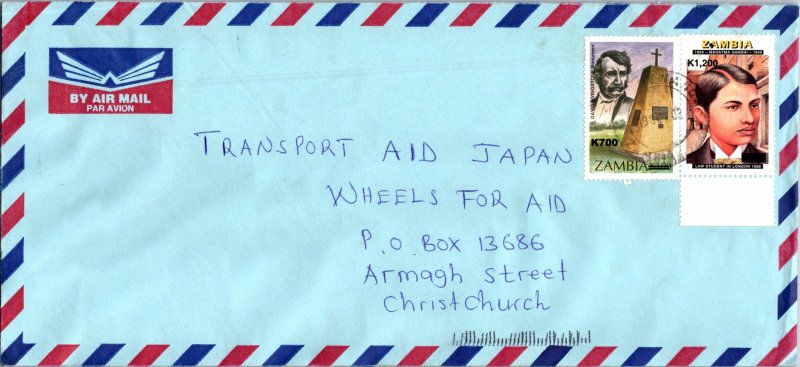 BY AIR MAIL
PAR AVION
K700
ZAMBIA
ZAMBIA
1869 - MAHATMA GANDHI - 1948
K1,200
LAW STUDENT IN LONDON 1888
TRANSPORT AID JAPAN
WHEELS FOR AID
P.O. BOX 13686
Armagh Street
ChristChurch